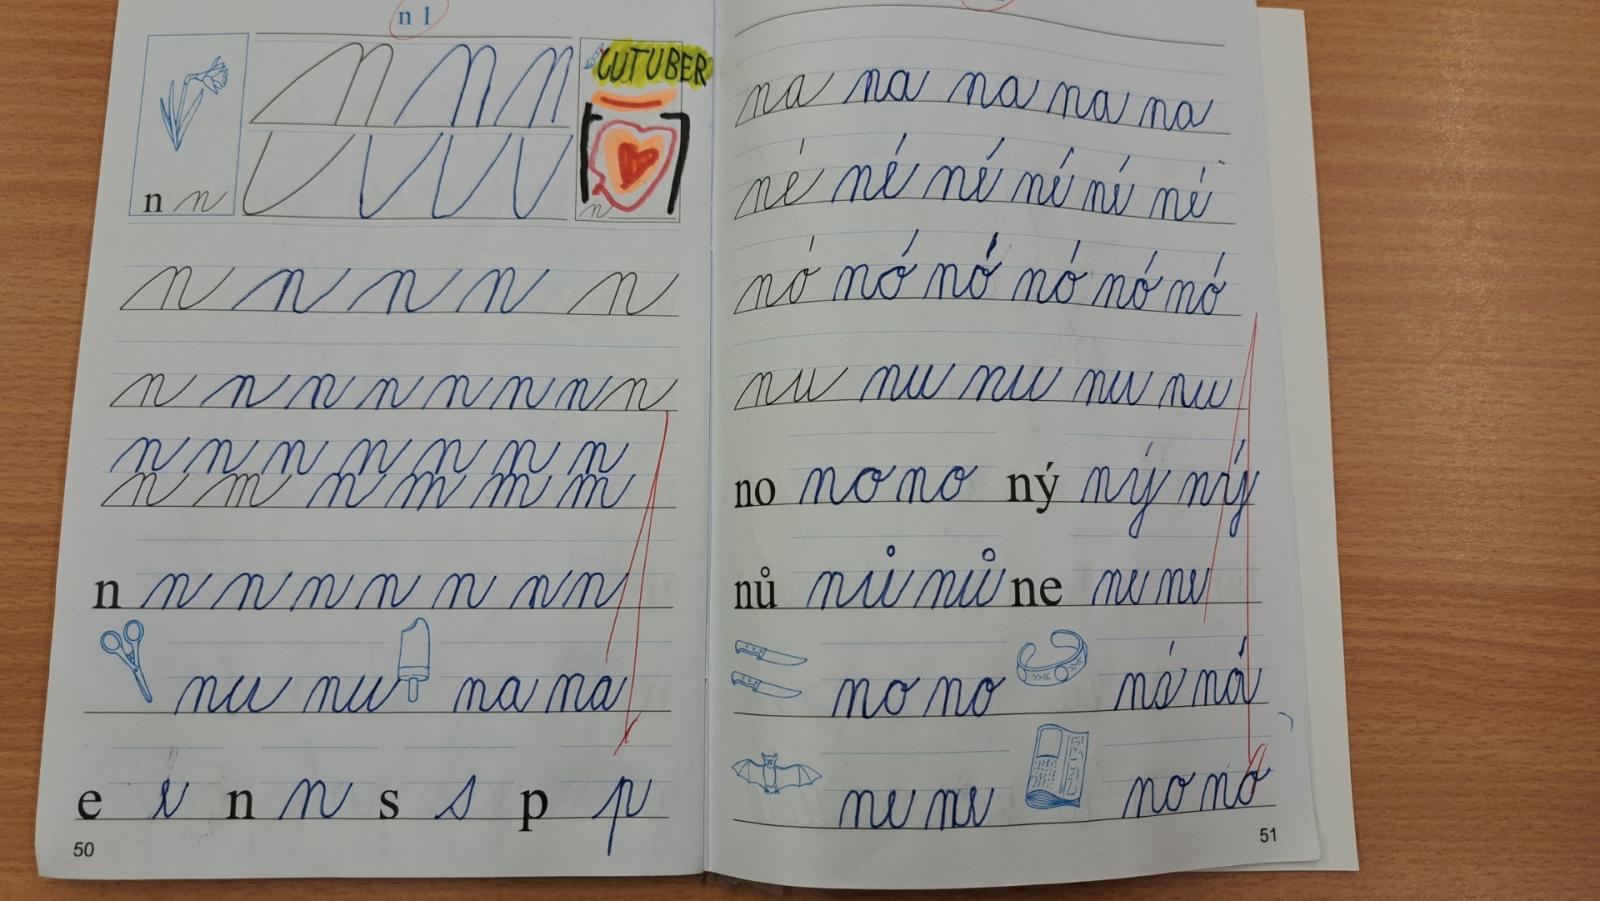 n 1
LUTUBER
n n
n
n n n n n
n n n n n n n n
n n n n n n n
n m n m m m
n n n n n n n n
nu nu na na
e e n n s s p p
50
na na na na na
né né né né né né
nó nó nó nó nó nó
nu nu nu nu nu
no no no ný ný ný
nů nů nů ne ne ne
no no ná ná
ne ne no no
51